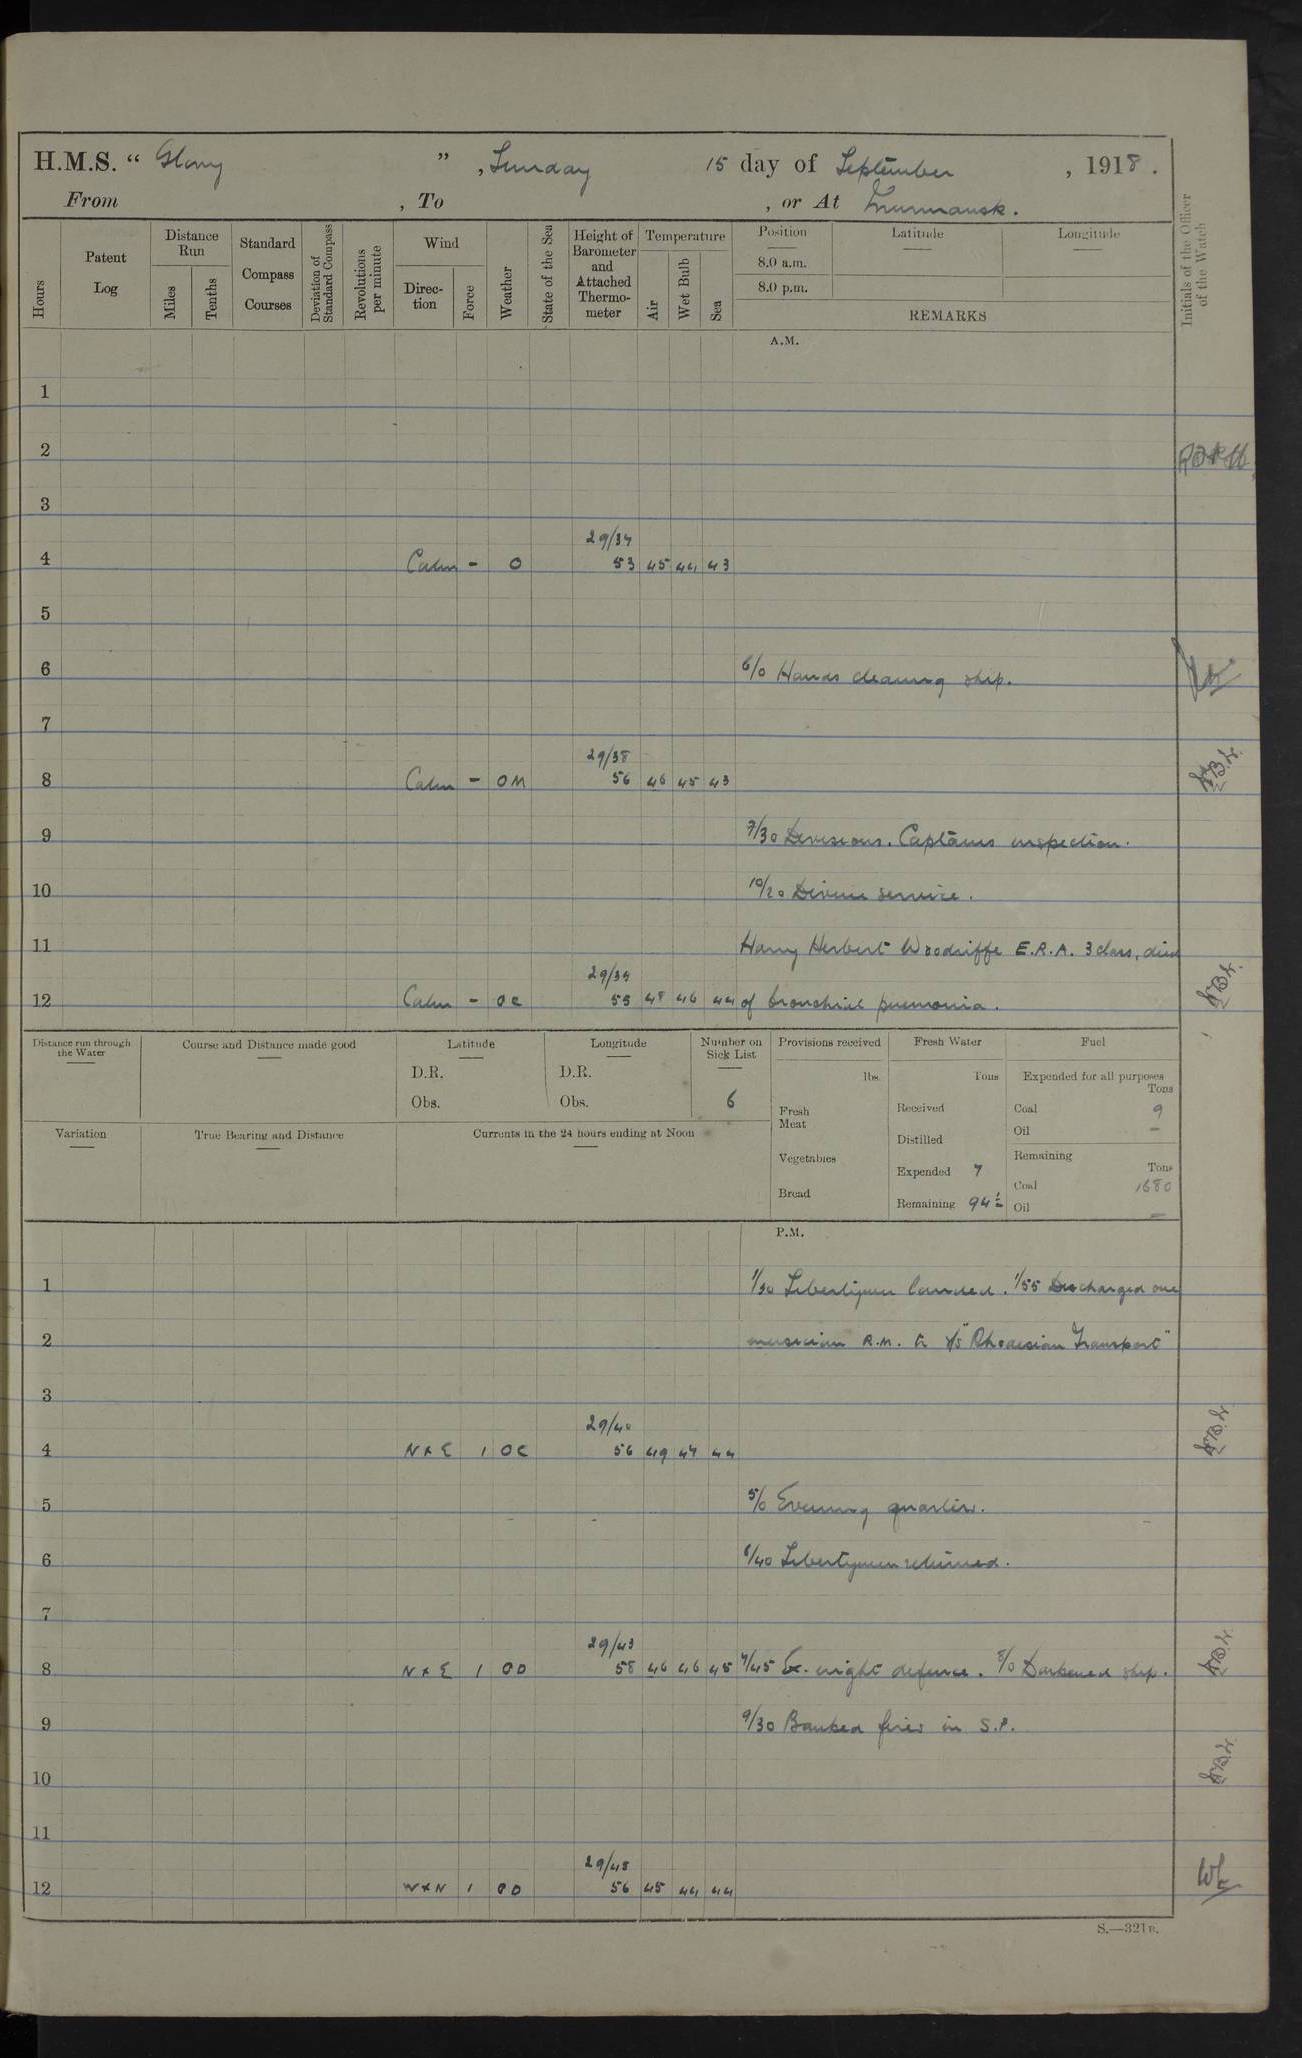 H.M.S. “ Glory ” , Sunday 15 day of September , 1918 .
From , To , or At Murmansk.
Hours
Patent Log
Distance Run
Miles
Tenths
Standard Compass Courses
Deviation of Standard Compass
Revolutions per minute
Wind
Direc-tion
Force
Weather
State of the Sea
Height of Barometer and Attached Thermo-meter
Temperature
Air
Wet Bulb
Sea
Position
Latitude
Longitude
8.0 a.m.
8.0 p.m.
REMARKS
Initials of the Officer of the Watch
A.M.
1
2
3
29/34
4 Calm - O 53 45 44 43
5
6 6/0 Hands cleaning ship.
7
29/38
8 Calm - OM 56 46 45 43
9 9/30 Divisions. Captains inspection.
10 10/20 Divine service.
11 Harry Herbert Woodriffe E.R.A. 3 class, died
29/34
12 Calm - OC 55 48 46 44 of bronchial pneumonia.
Distance run through the Water
Course and Distance made good
Latitude
D.R.
Obs.
Longitude
D.R.
Obs.
Number on Sick List
6
Variation
True Bearing and Distance
Currents in the 24 hours ending at Noon
Provisions received
lbs.
Fresh Meat
Vegetables
Bread
Fresh Water
Tons
Received
Distilled
Expended 7
Remaining 94½
Fuel
Expended for all purposes
Tons
Coal 9
Oil —
Remaining
Tons
Coal 1680
Oil —
P.M.
1 1/30 Libertymen landed. 1/55 Discharged one
2 musician R.M. to S/S "Rhodesian Transport"
3
29/40
4 N x E 1 OC 56 49 47 44
5 5/0 Evening quarters.
6 6/40 Libertymen returned.
7
29/43
8 N x E 1 OD 58 46 46 45 7/45 Ex. night defence. 8/0 Darkened ship.
9 9/30 Banked fires in S.P.
10
11
29/48
12 W x N 1 OD 56 45 44 44
S.—321B.